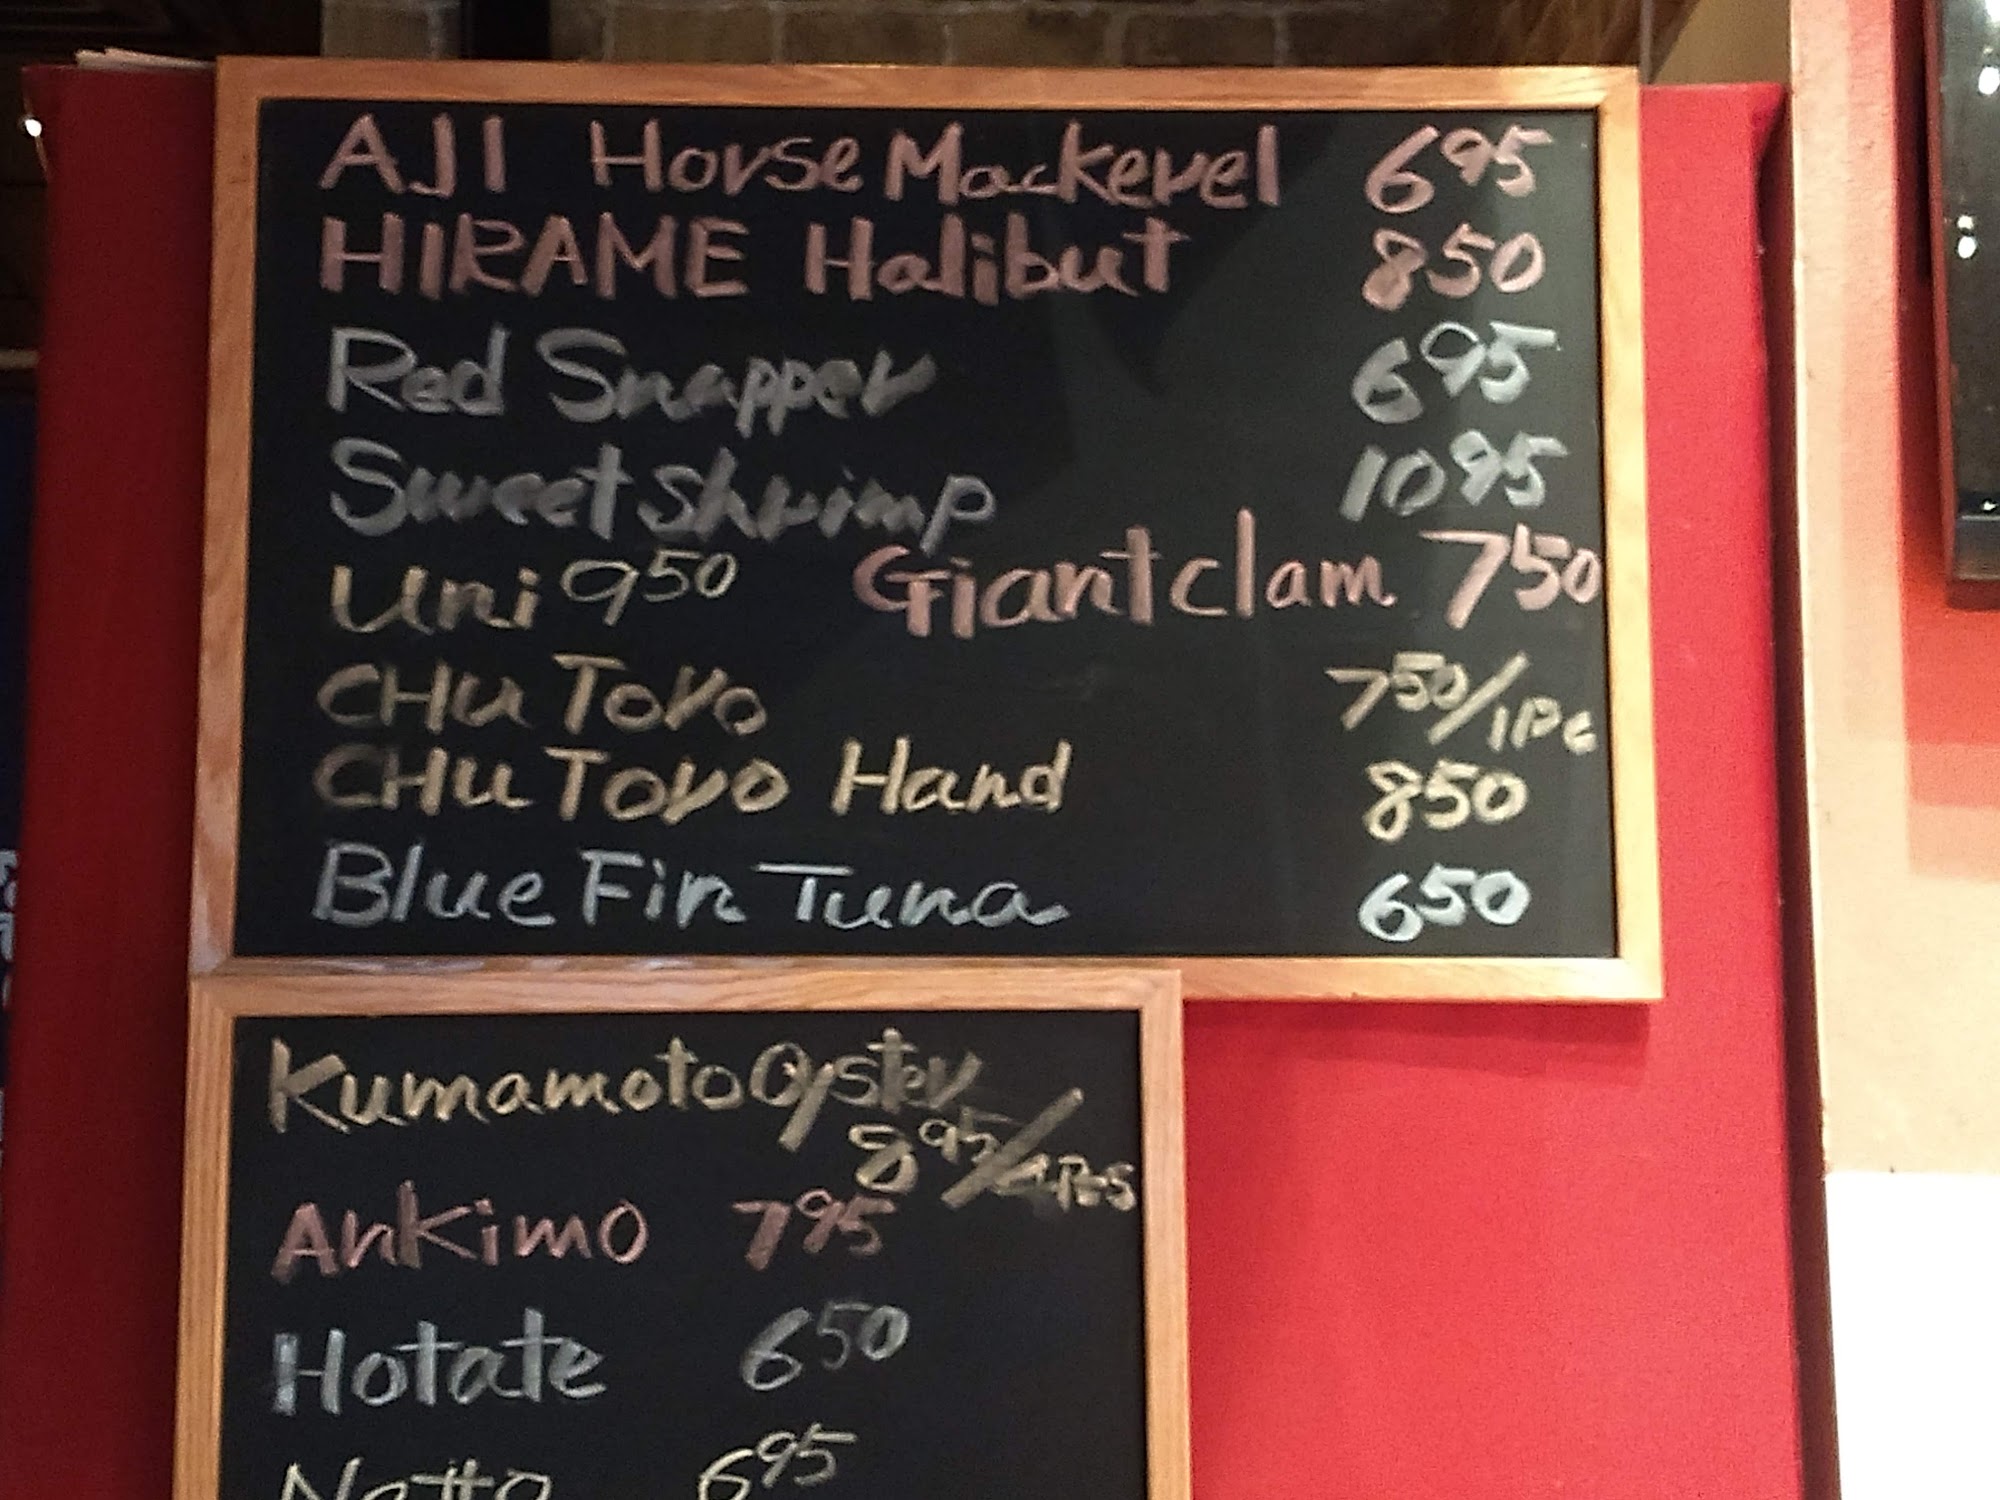 AJI Horse Mackerel 695
HIRAME Halibut 850
Red Snapper 695
Sweet Shrimp 1095
Uni 950 Giant clam 750
CHU TORO 750/1Pc
CHU TORO Hand 850
Blue Fin Tuna 650
Kumamoto Oyster
895/
Ankimo 795
Hotate 650
Natto 695